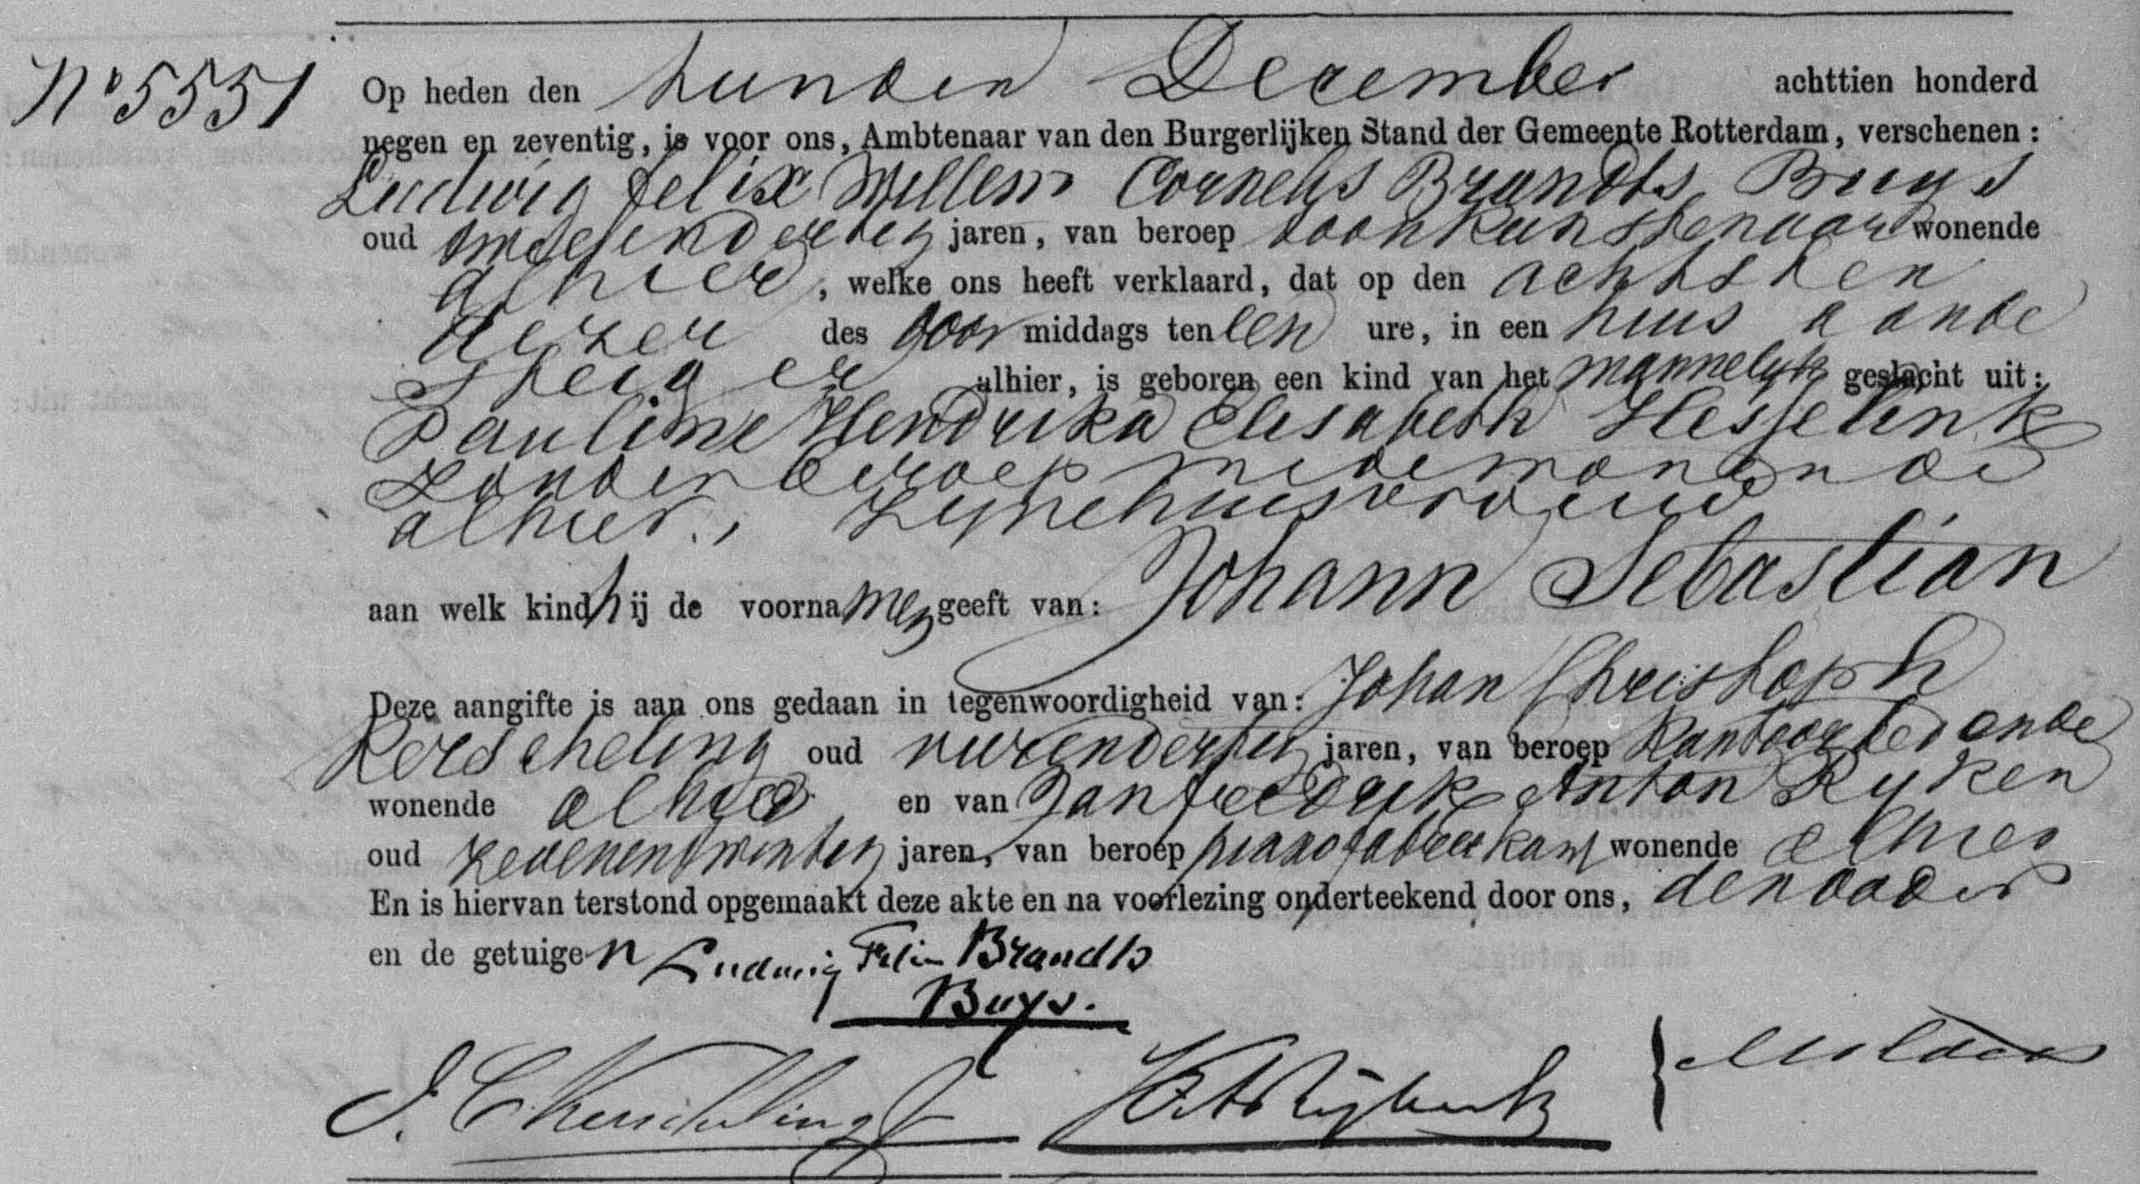 No 5551
Op heden den tienden December achttien honderd
negen en zeventig, is voor ons, Ambtenaar van den Burgerlijken Stand der Gemeente Rotterdam, verschenen:
Ludwig Felix Willem Cornelis Brandts Buys
oud tweeendertig jaren, van beroep toonkunstenaar wonende
alhier, welke ons heeft verklaard, dat op den achtsten
dezer des voor middags ten een ure, in een huis aande
Steiger alhier, is geboren een kind van het mannelijk geslacht uit:
Pauline Hendrika Elisabeth Hesselink
zonder beroep mede wonende
alhier, zijne huisvrouw
aan welk kind hij de voornamen geeft van: Johann Sebastian
Deze aangifte is aan ons gedaan in tegenwoordigheid van: Johan Christoph
Kerscheling oud vierendertig jaren, van beroep kantoorbediende
wonende alhier en van Jan Fredrik Anton Ryken
oud zevenentwintig jaren, van beroep pianofabrikant wonende alhier
En is hiervan terstond opgemaakt deze akte en na voorlezing onderteekend door ons, den vader
en de getuigen Ludwig Felix Brandts
Buys.
J. C. Kerscheling